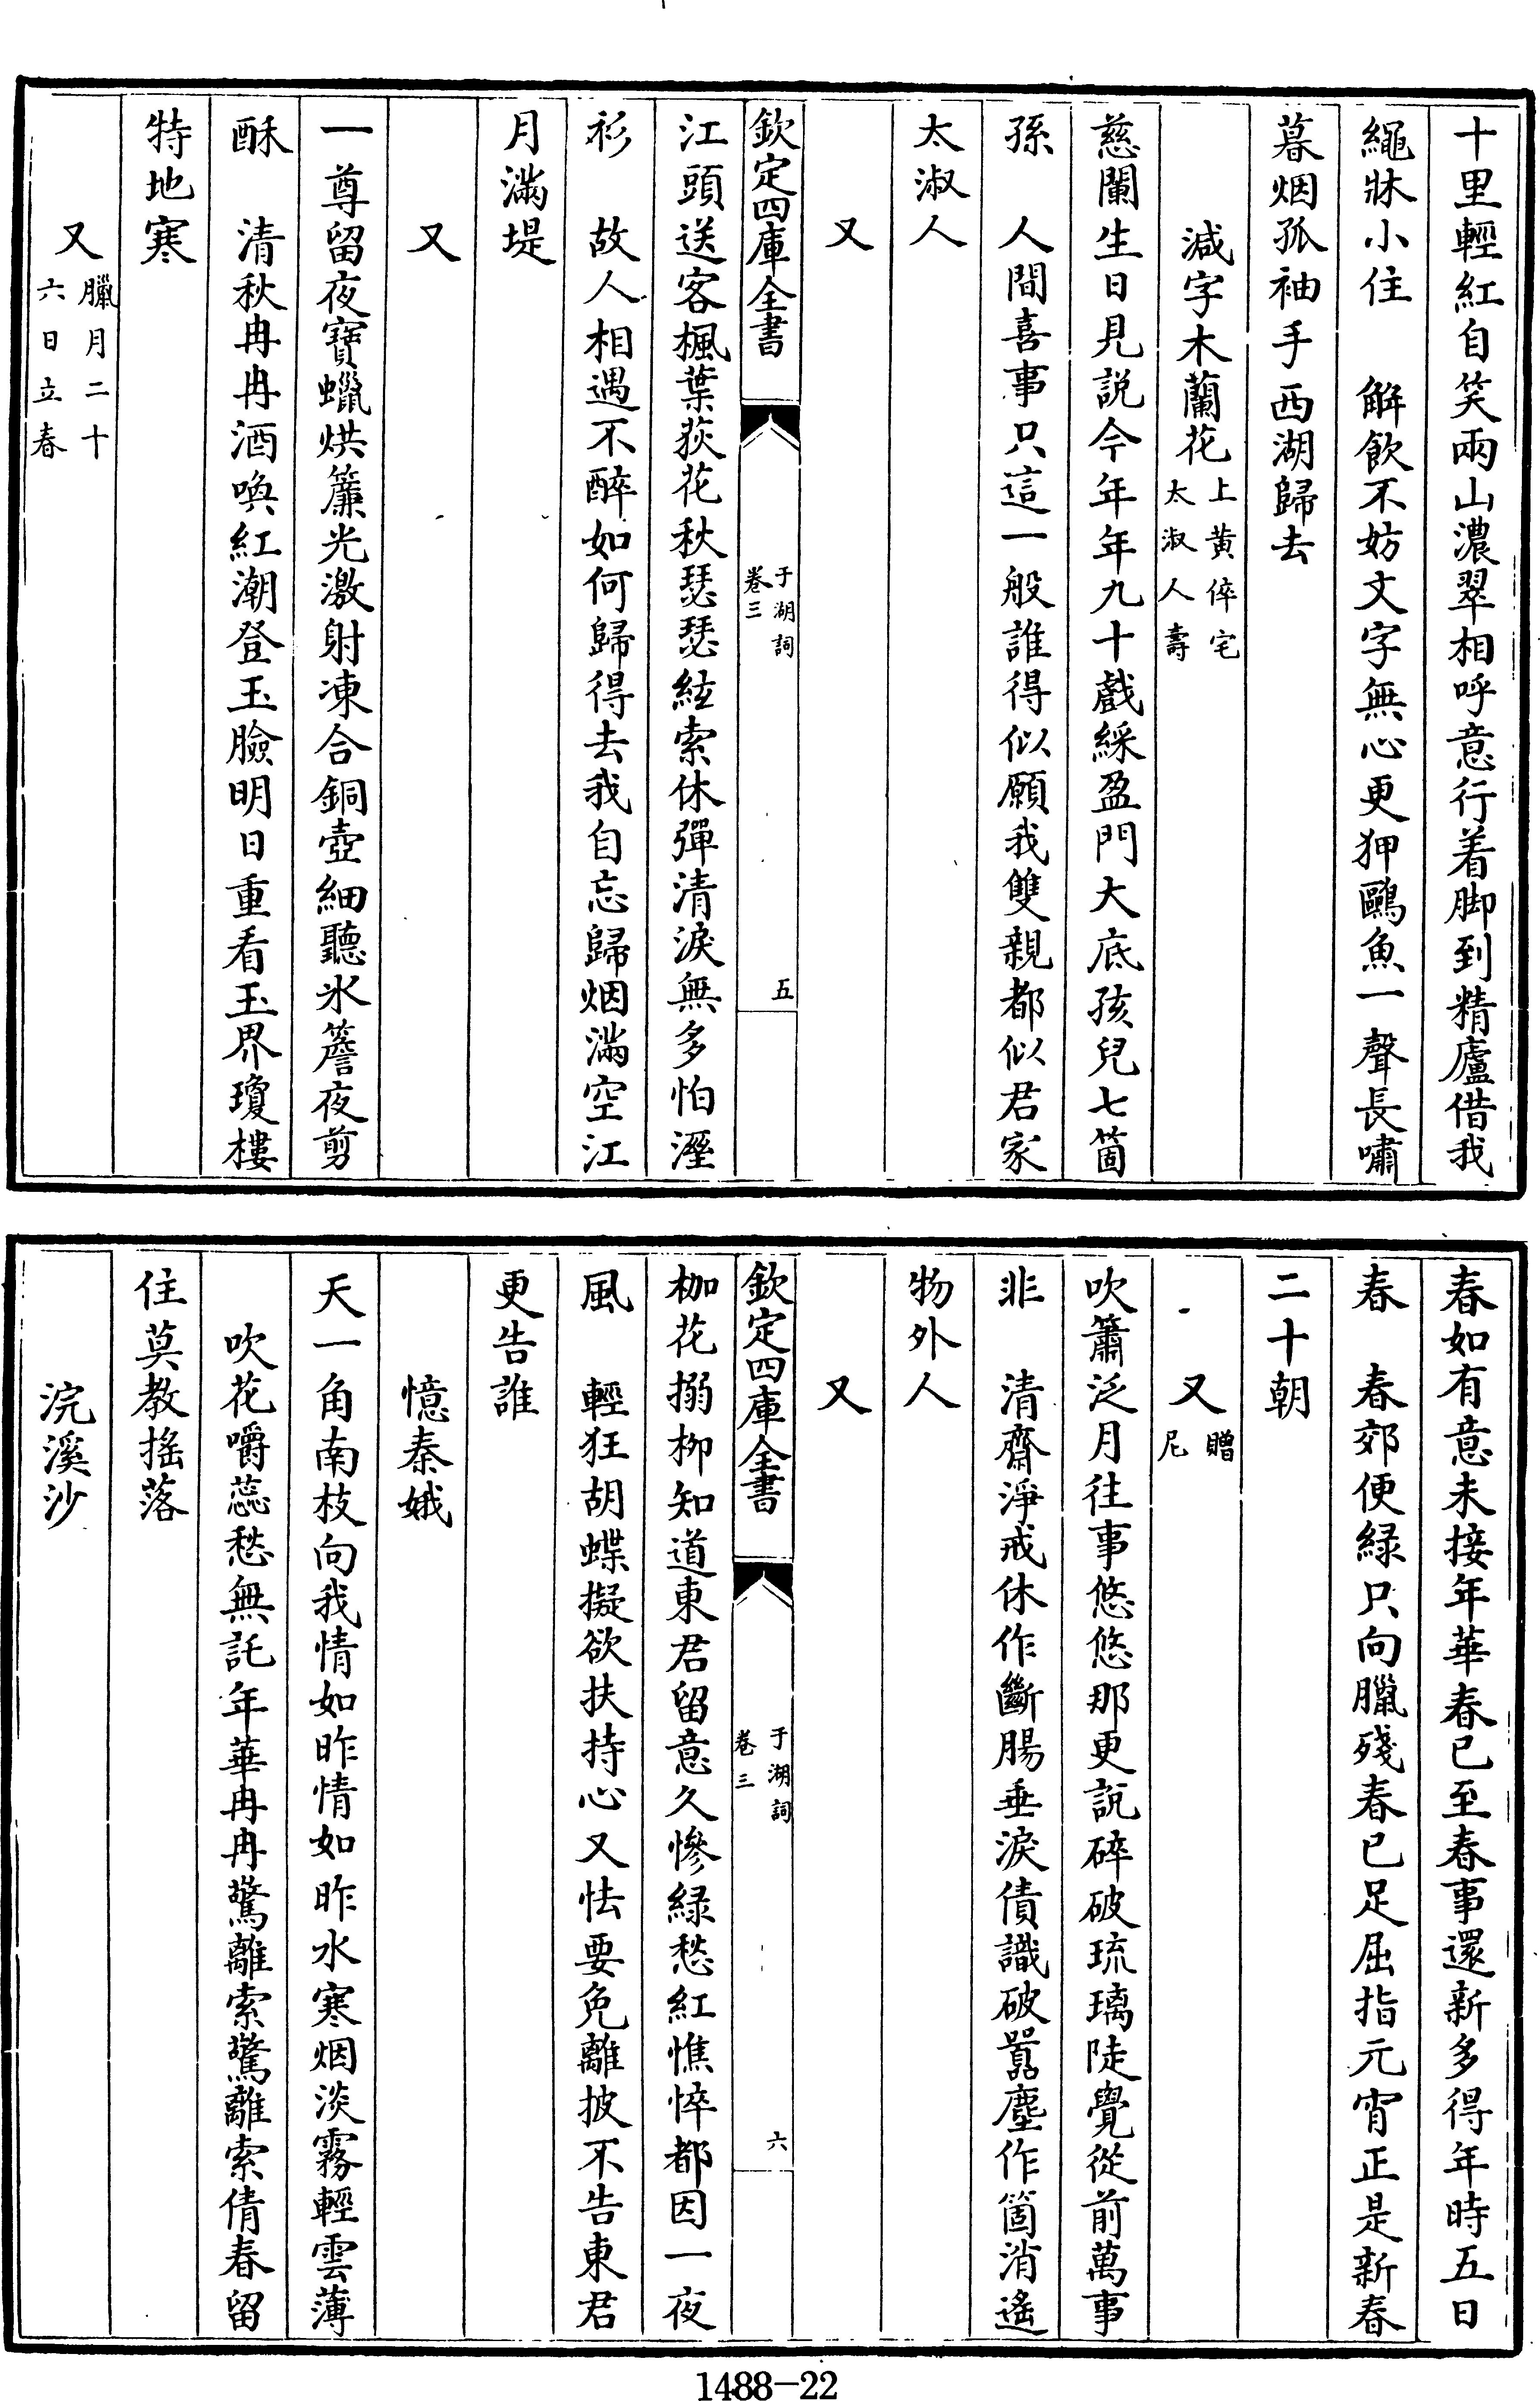 十里輕紅自笑兩山濃翠相呼意行着脚到精廬借我
繩牀小住　解飲不妨文字無心更狎鷗魚一聲長嘯
暮烟孤袖手西湖歸去
減字木蘭花上黄倅宅太淑人壽
慈闈生日見説今年年九十戲綵盈門大底孩兒七箇
孫　人間喜事只這一般誰得似願我雙親都似君家
太淑人
又
欽定四庫全書　于湖詞卷三　五
江頭送客楓葉荻花秋瑟瑟絃索休彈清淚無多怕溼
衫　故人相遇不醉如何歸得去我自忘歸烟滿空江
月滿堤
又
一尊留夜寶蠟烘簾光激射凍合銅壺細聽氷簷夜剪
酥　清秋冉冉酒喚紅潮登玉臉明日重看玉界瓊樓
特地寒
又臘月二十六日立春
春如有意未接年華春已至春事還新多得年時五日
春　春郊便緑只向臘殘春已足屈指元宵正是新春
二十朝
又贈尼
吹簫泛月往事悠悠那更説碎破琉璃陡覺從前萬事
非　清齋淨戒休作斷腸垂淚債識破嚣塵作箇消遙
物外人
又
欽定四庫全書　于湖詞卷三　六
枷花搦柳知道東君留意久慘緑愁紅憔悴都因一夜
風　輕狂胡蝶擬欲扶持心又怯要免離披不告東君
更告誰
憶秦娥
天一角南枝向我情如昨情如昨水寒烟淡霧輕雲薄
　吹花嚼蕊愁無託年華冉冉驚離索驚離索倩春留
住莫教搖落
浣溪沙
1488-22